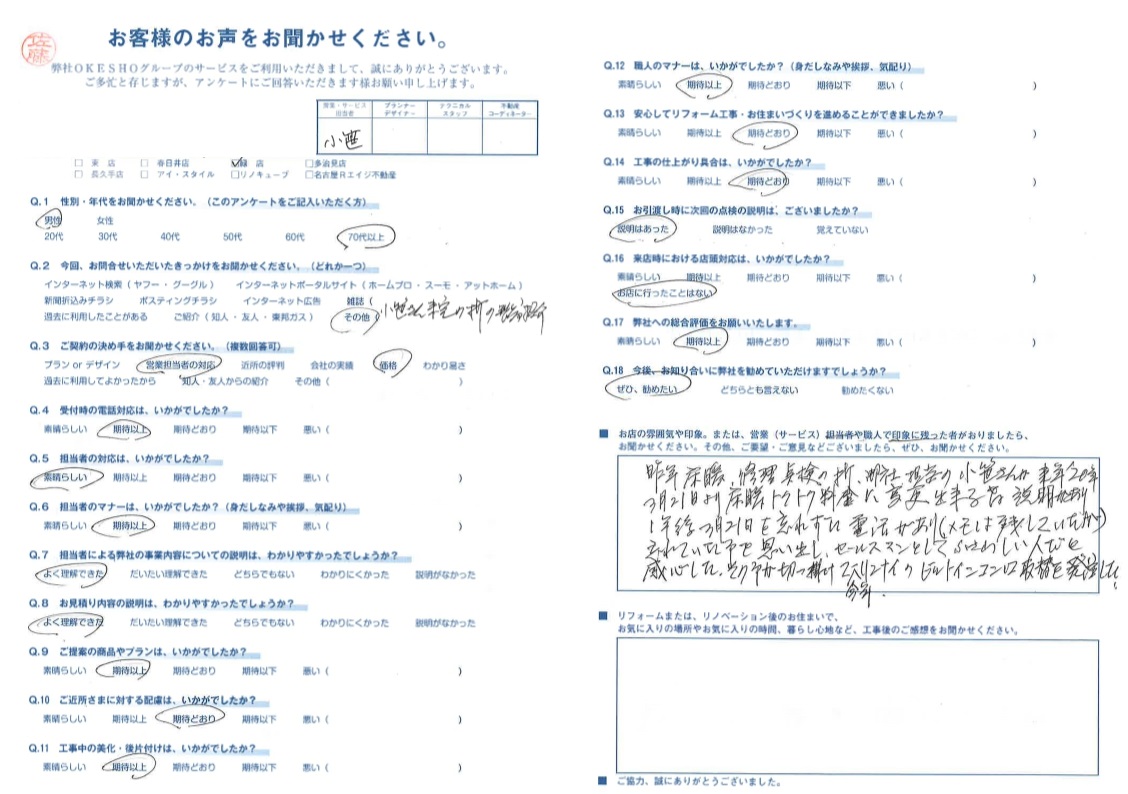 佐藤
お客様のお声をお聞かせください。
弊社OKESHOグループのサービスをご利用いただきまして、誠にありがとうございます。
ご多忙と存じますが、アンケートにご回答いただきます様お願い申し上げます。
営業・サービス担当者 プランナーデザイナー テクニカルスタッフ 不動産コーディネーター
小笹
□ 東 店 □ 春日井店 ☑緑 店 □多治見店
□ 長久手店 □ アイ・スタイル □リノキューブ □名古屋Rエイジ不動産
Q.1 性別・年代をお聞かせください。(このアンケートをご記入いただく方)
男性 女性
20代 30代 40代 50代 60代 70代以上
Q.2 今回、お問合せいただいたきっかけをお聞かせください。(どれか一つ)
インターネット検索(ヤフー・グーグル) インターネットポータルサイト(ホームプロ・スーモ・アットホーム)
新聞折込みチラシ ポスティングチラシ インターネット広告 雑誌(
過去に利用したことがある ご紹介(知人・友人・東邦ガス) その他 小笹さん来宅の折の
Q.3 ご契約の決め手をお聞かせください。(複数回答可)
プラン or デザイン 営業担当者の対応 近所の評判 会社の実績 価格 わかり易さ
過去に利用してよかったから 知人・友人からの紹介 その他( )
Q.4 受付時の電話対応は、いかがでしたか?
素晴らしい 期待以上 期待どおり 期待以下 悪い( )
Q.5 担当者の対応は、いかがでしたか?
素晴らしい 期待以上 期待どおり 期待以下 悪い( )
Q.6 担当者のマナーは、いかがでしたか?(身だしなみや挨拶、気配り)
素晴らしい 期待以上 期待どおり 期待以下 悪い( )
Q.7 担当者による弊社の事業内容についての説明は、わかりやすかったでしょうか?
よく理解できた だいたい理解できた どちらでもない わかりにくかった 説明がなかった
Q.8 お見積り内容の説明は、わかりやすかったでしょうか?
よく理解できた だいたい理解できた どちらでもない わかりにくかった 説明がなかった
Q.9 ご提案の商品やプランは、いかがでしたか?
素晴らしい 期待以上 期待どおり 期待以下 悪い( )
Q.10 ご近所さまに対する配慮は、いかがでしたか?
素晴らしい 期待以上 期待どおり 期待以下 悪い( )
Q.11 工事中の美化・後片付けは、いかがでしたか?
素晴らしい 期待以上 期待どおり 期待以下 悪い( )
Q.12 職人のマナーは、いかがでしたか?(身だしなみや挨拶、気配り)
素晴らしい 期待以上 期待どおり 期待以下 悪い( )
Q.13 安心してリフォーム工事・お住まいづくりを進めることができましたか?
素晴らしい 期待以上 期待どおり 期待以下 悪い( )
Q.14 工事の仕上がり具合は、いかがでしたか?
素晴らしい 期待以上 期待どおり 期待以下 悪い( )
Q.15 お引渡し時に次回の点検の説明は、ございましたか?
説明はあった 説明はなかった 覚えていない
Q.16 来店時における店頭対応は、いかがでしたか?
素晴らしい 期待以上 期待どおり 期待以下 悪い( )
お店に行ったことはない
Q.17 弊社への総合評価をお願いいたします。
素晴らしい 期待以上 期待どおり 期待以下 悪い( )
Q.18 今後、お知り合いに弊社を勧めていただけますでしょうか?
ぜひ、勧めたい どちらとも言えない 勧めたくない
■ お店の雰囲気や印象。または、営業(サービス)担当者や職人で印象に残った者がおりましたら、
お聞かせください。その他、ご要望・ご意見などございましたら、ぜひ、お聞かせください。
昨年床暖、修理点検の折、御社担当の小笹さんが来年20年
3月21日より床暖トクトク料金に変更出来る旨説明あり
1年後3月21日を忘れずに電話があり(メモは残していたが)
忘れていた事を思い出し、セールスマンとしてふさわしい人だと
感心した。その事が切っ掛けでリンナイのビルトインコンロ取替を発注した。
■ リフォームまたは、リノベーション後のお住まいで、
お気に入りの場所やお気に入りの時間、暮らし心地など、工事後のご感想をお聞かせください。
■ ご協力、誠にありがとうございました。